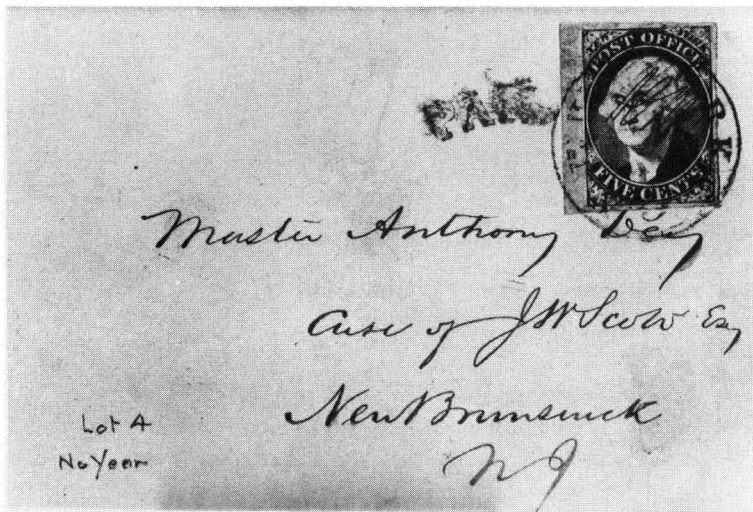 POST OFFICE
PAID
FIVE CENTS
Master Anthony Dey
Care of J W Scott Esq
New Brunswick
N J
Lot A
No Year